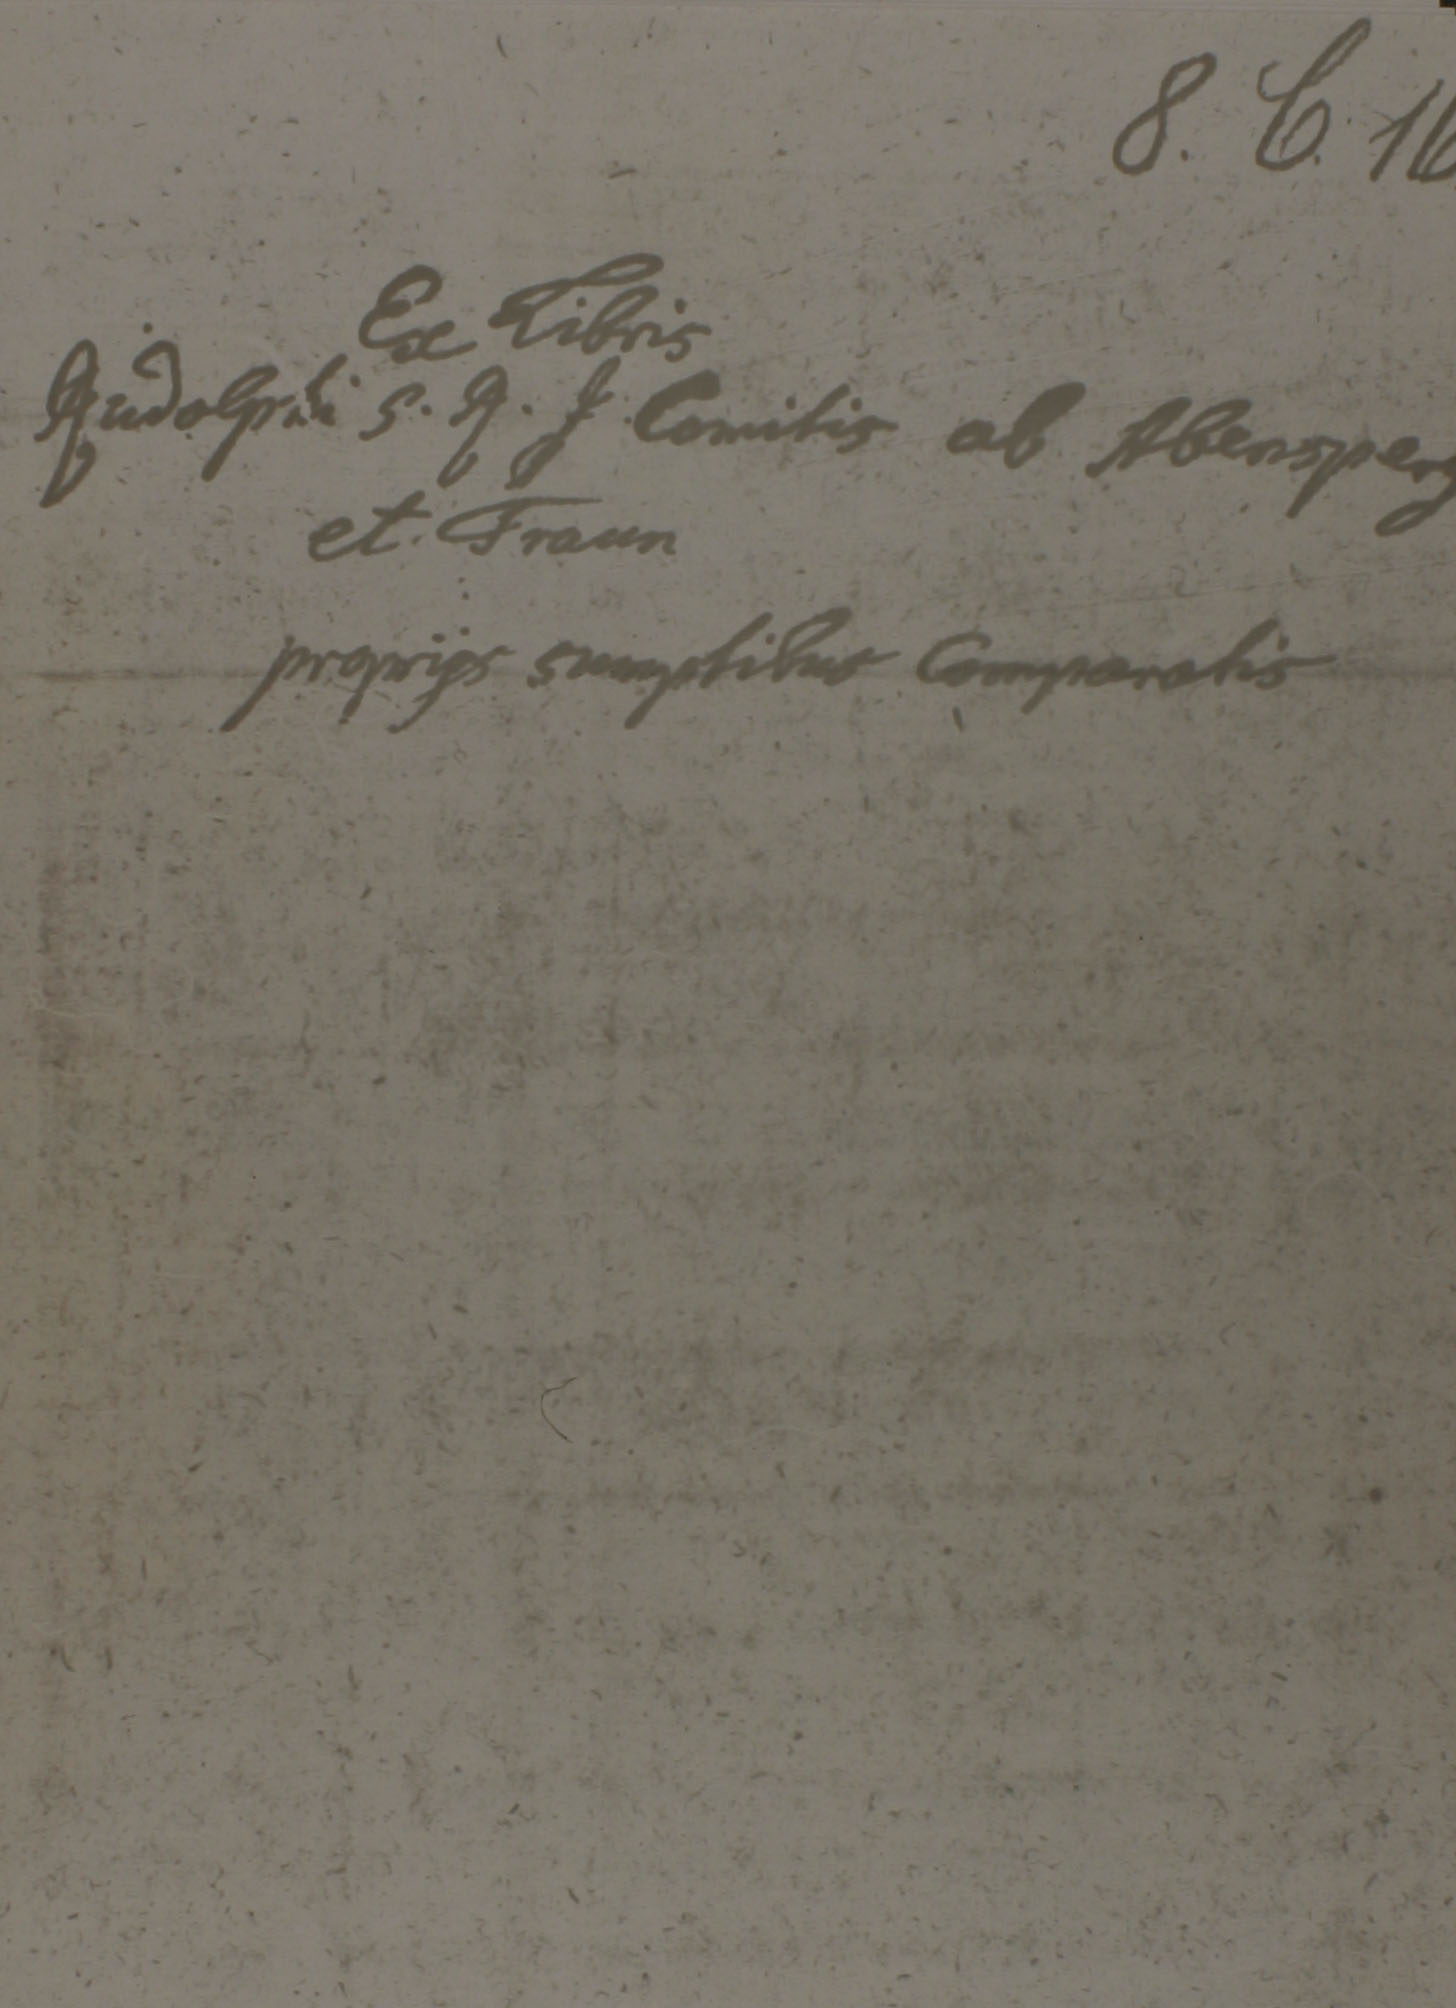 8. C. 16
Ex Libris
Rudolphi S. R. J. Comitis ab Abensperg
et Traun
proprijs sumptibus Comparatis